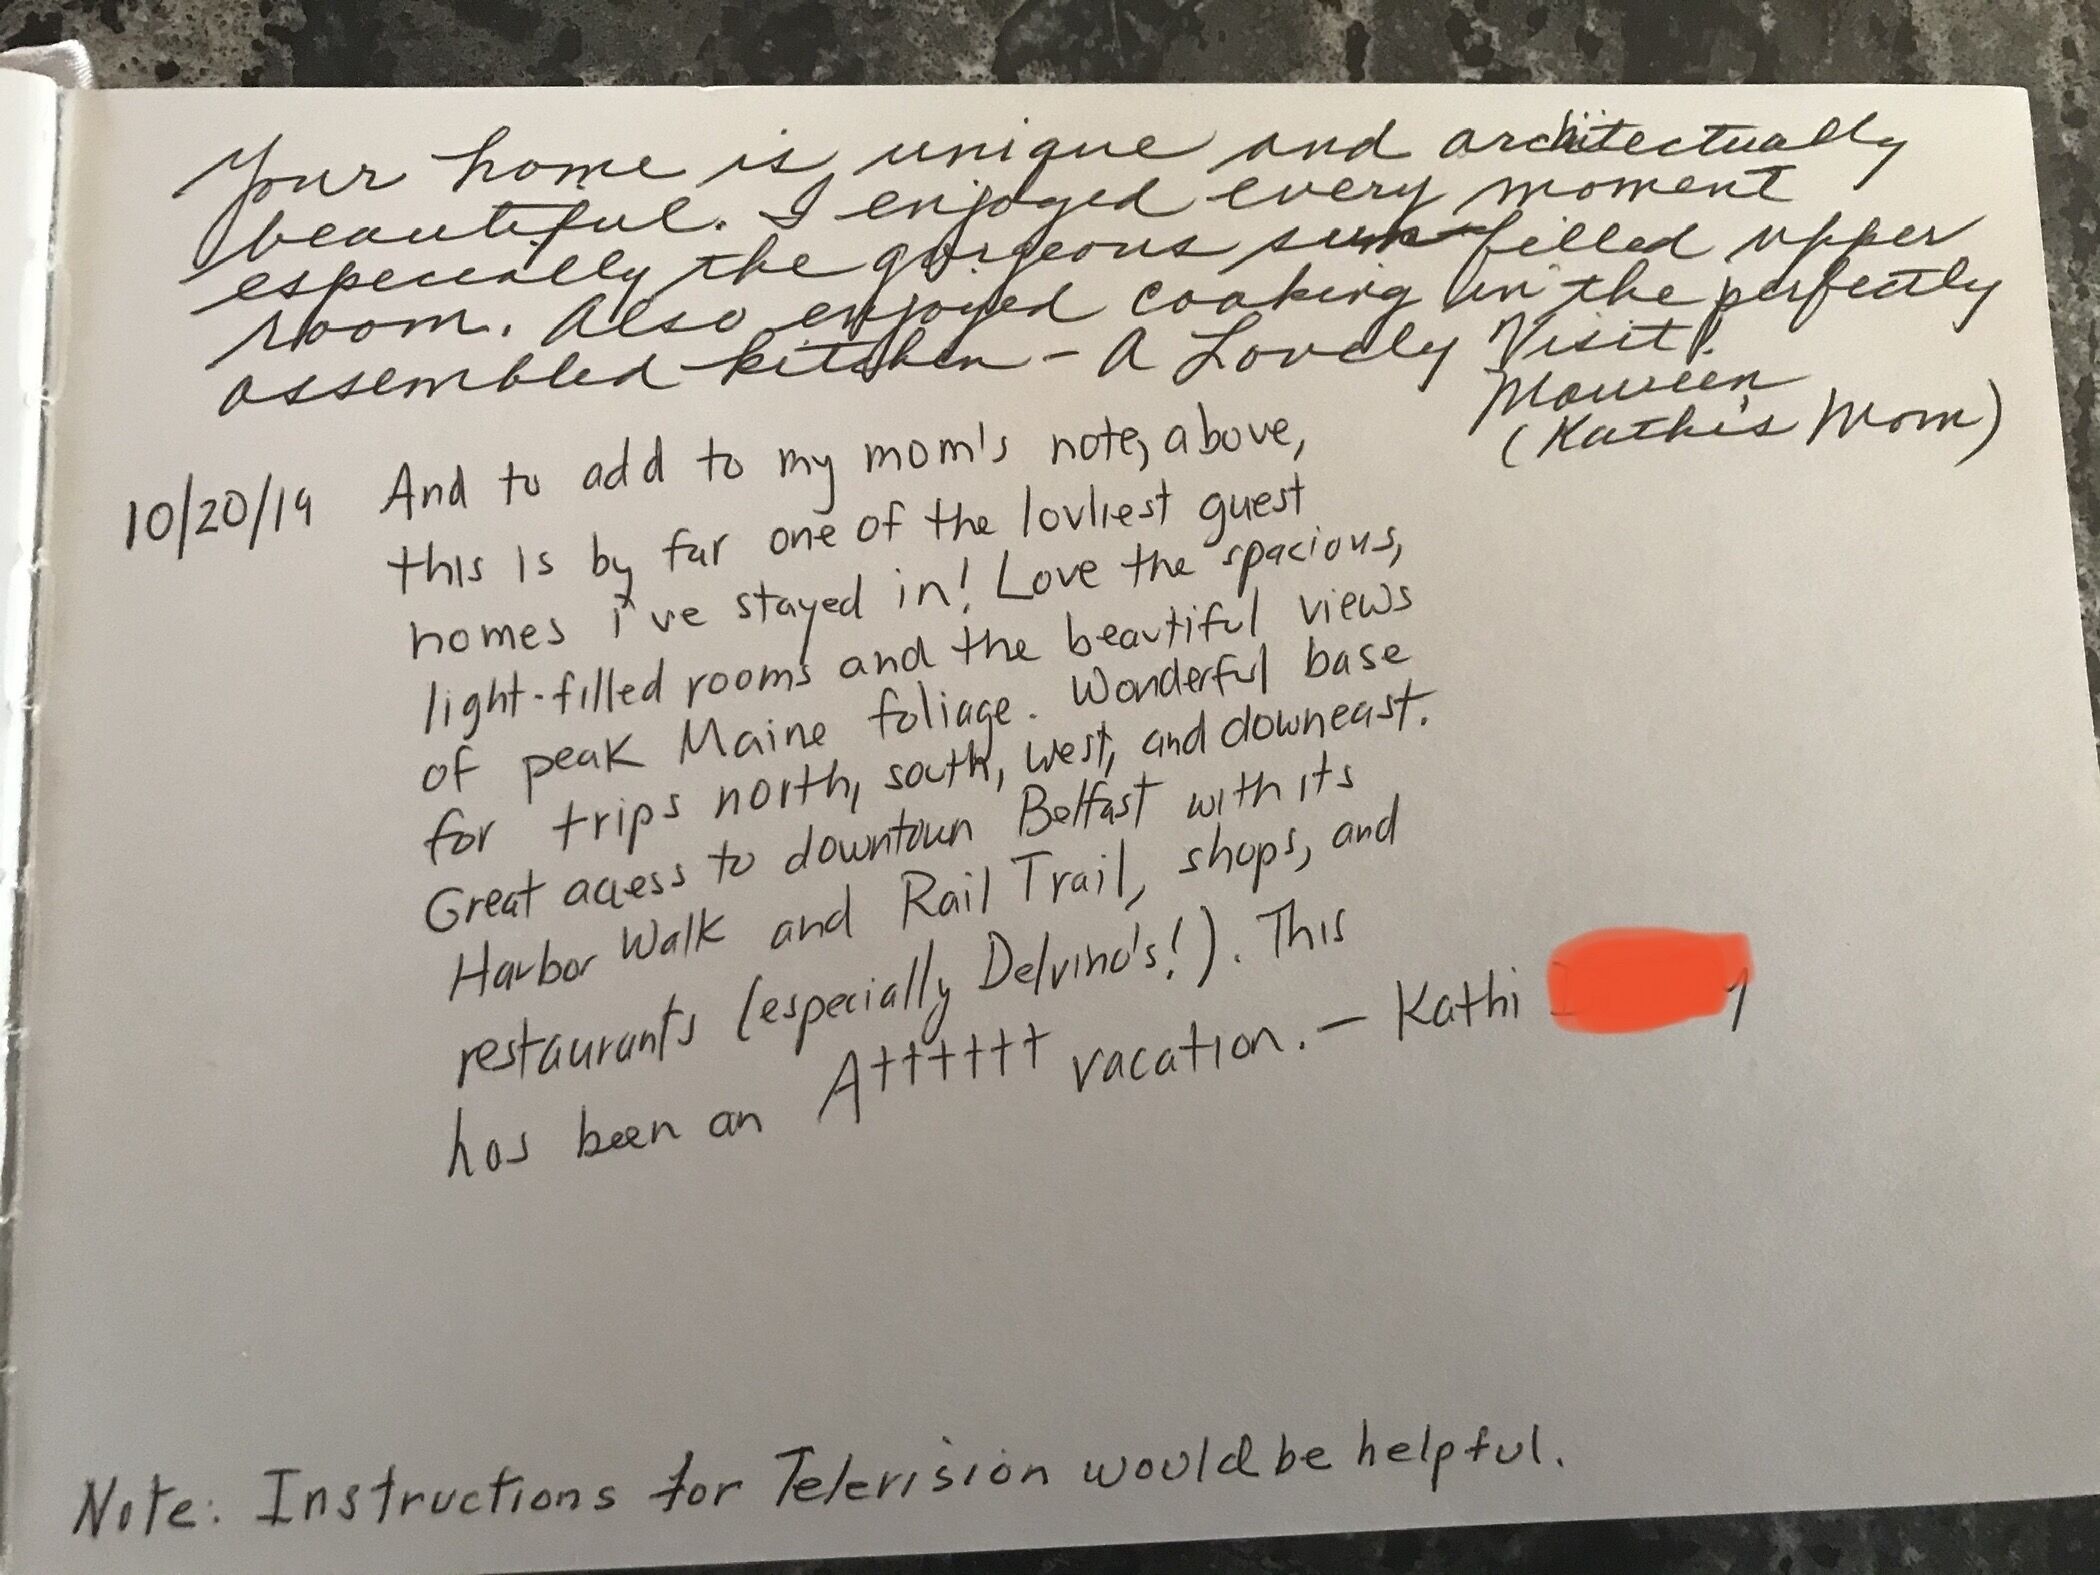 Your home is unique and architectually
beautiful. I enjoyed every moment
especially the gorgeous sun-filled upper
room. Also enjoyed cooking in the perfectly
assembled kitchen - A Lovely Visit!
Maureen
(Kathi's Mom)
10/20/19 And to add to my mom's note, above,
this is by far one of the lovliest guest
homes i've stayed in! Love the spacious,
light-filled rooms and the beautiful views
of peak Maine foliage. Wonderful base
for trips north, south, west, and downeast.
Great access to downtown Belfast with its
Harbor Walk and Rail Trail, shops, and
restaurants (especially Delvino's!). This
has been an A++++++ vacation. - Kathi
Note: Instructions for Television would be helpful.